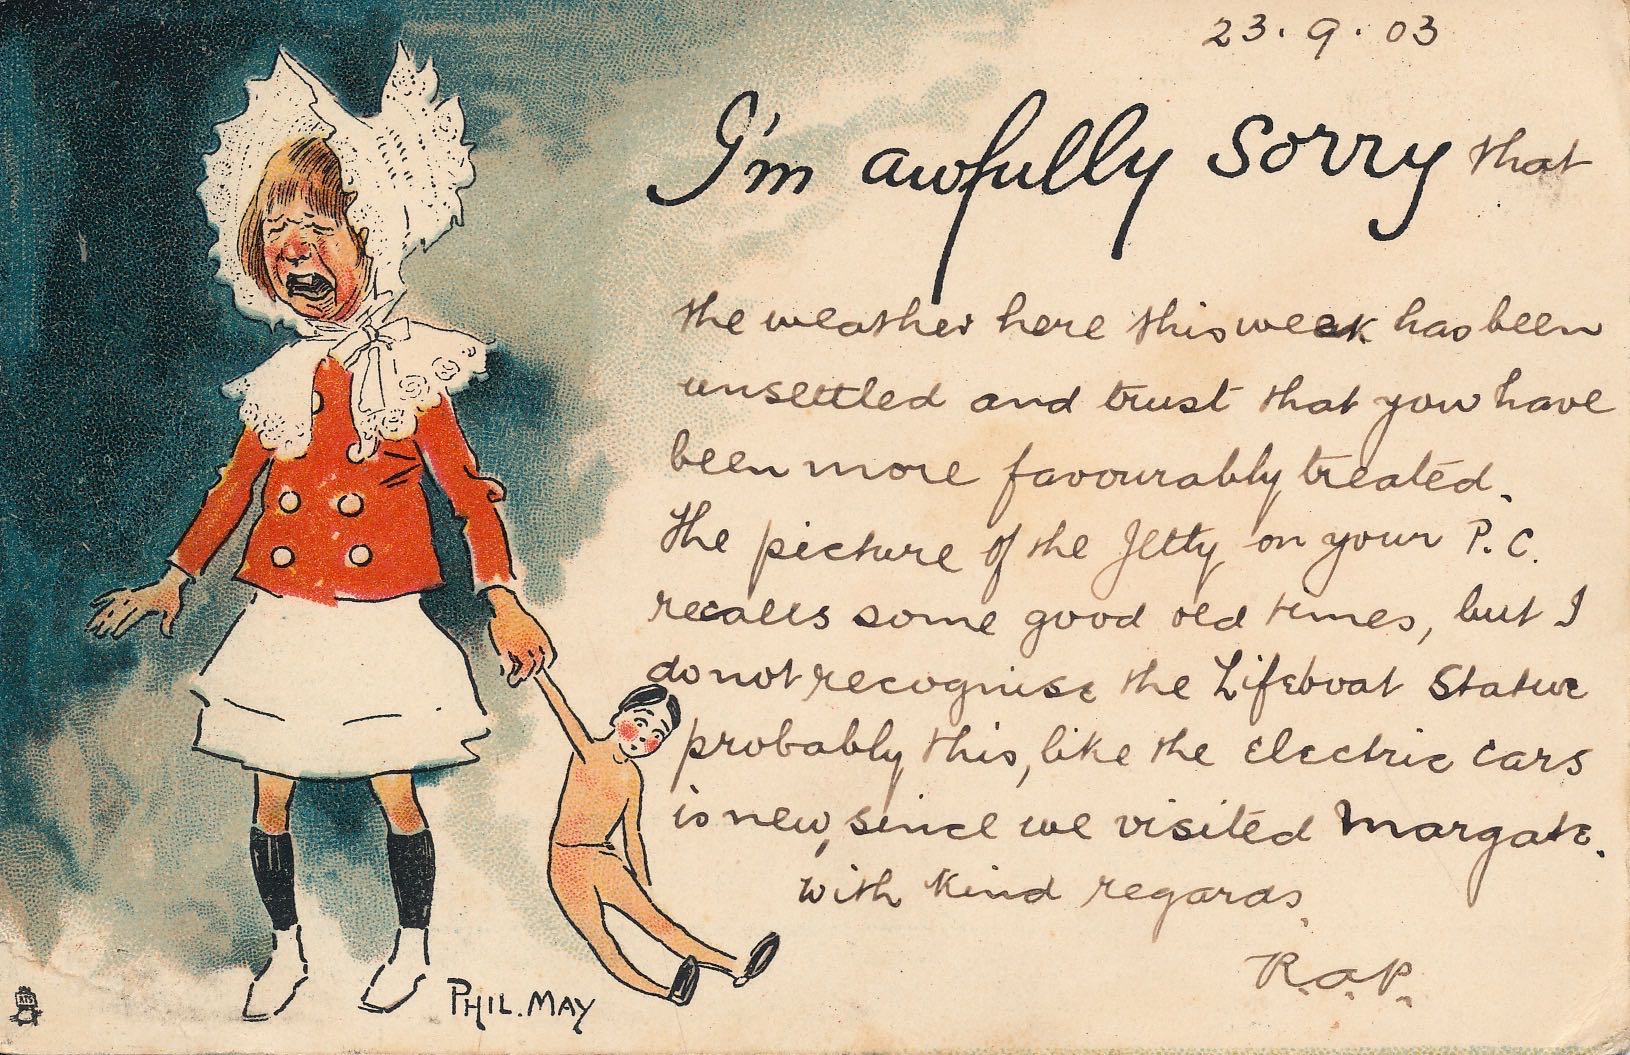 23.9.03
I'm awfully sorry that
the weather here this week has been
unsettled and trust that you have
been more favourably treated.
The picture of the Jetty on your P.C.
recalls some good old times, but I
do not recognise the Lifeboat Statue
probably this, like the electric cars
is new, since we visited Margate.
With kind regards,
R.A.P.
PHIL. MAY